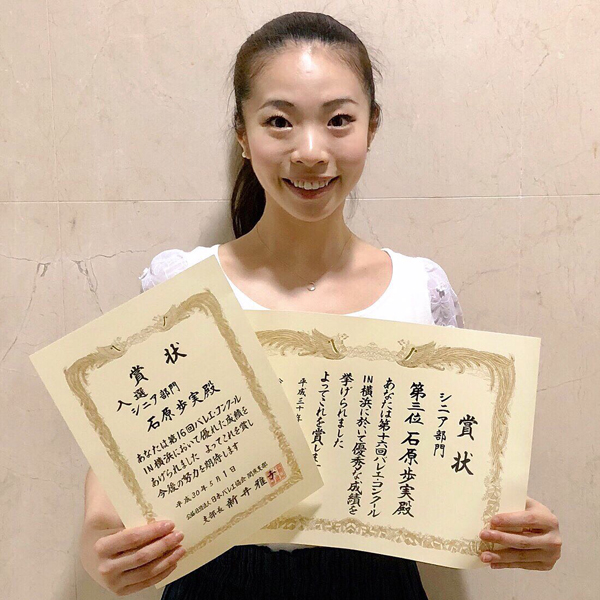 賞状
入選
シニア部門
石原歩実殿
あなたは第16回バレエ・コンクール
IN横浜において優れた成績を
あげられました よってこれを賞し
今後の努力を期待します
平成30年5月1日
公益社団法人 日本バレエ協会 関東支部
支部長 新井雅子
賞状
シニア部門
第三位 石原歩実殿
あなたは第十六回バレエ・コンクール
IN横浜に於いて優秀な成績を
挙げられました
よってこれを賞しま
平成三十年